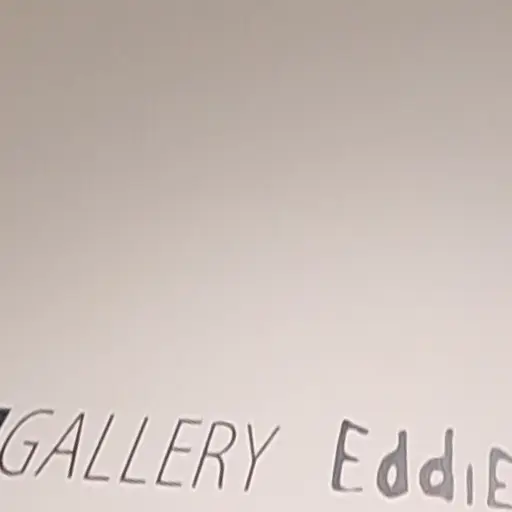 GALLERY EddIE